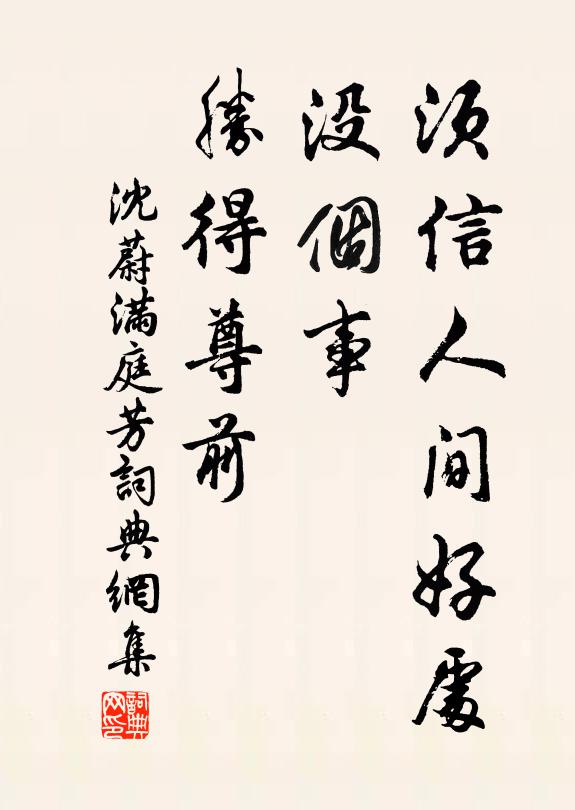 須信人間好處
沒個事
勝得尊前
沈蔚滿庭芳詞典網集
詞典网印